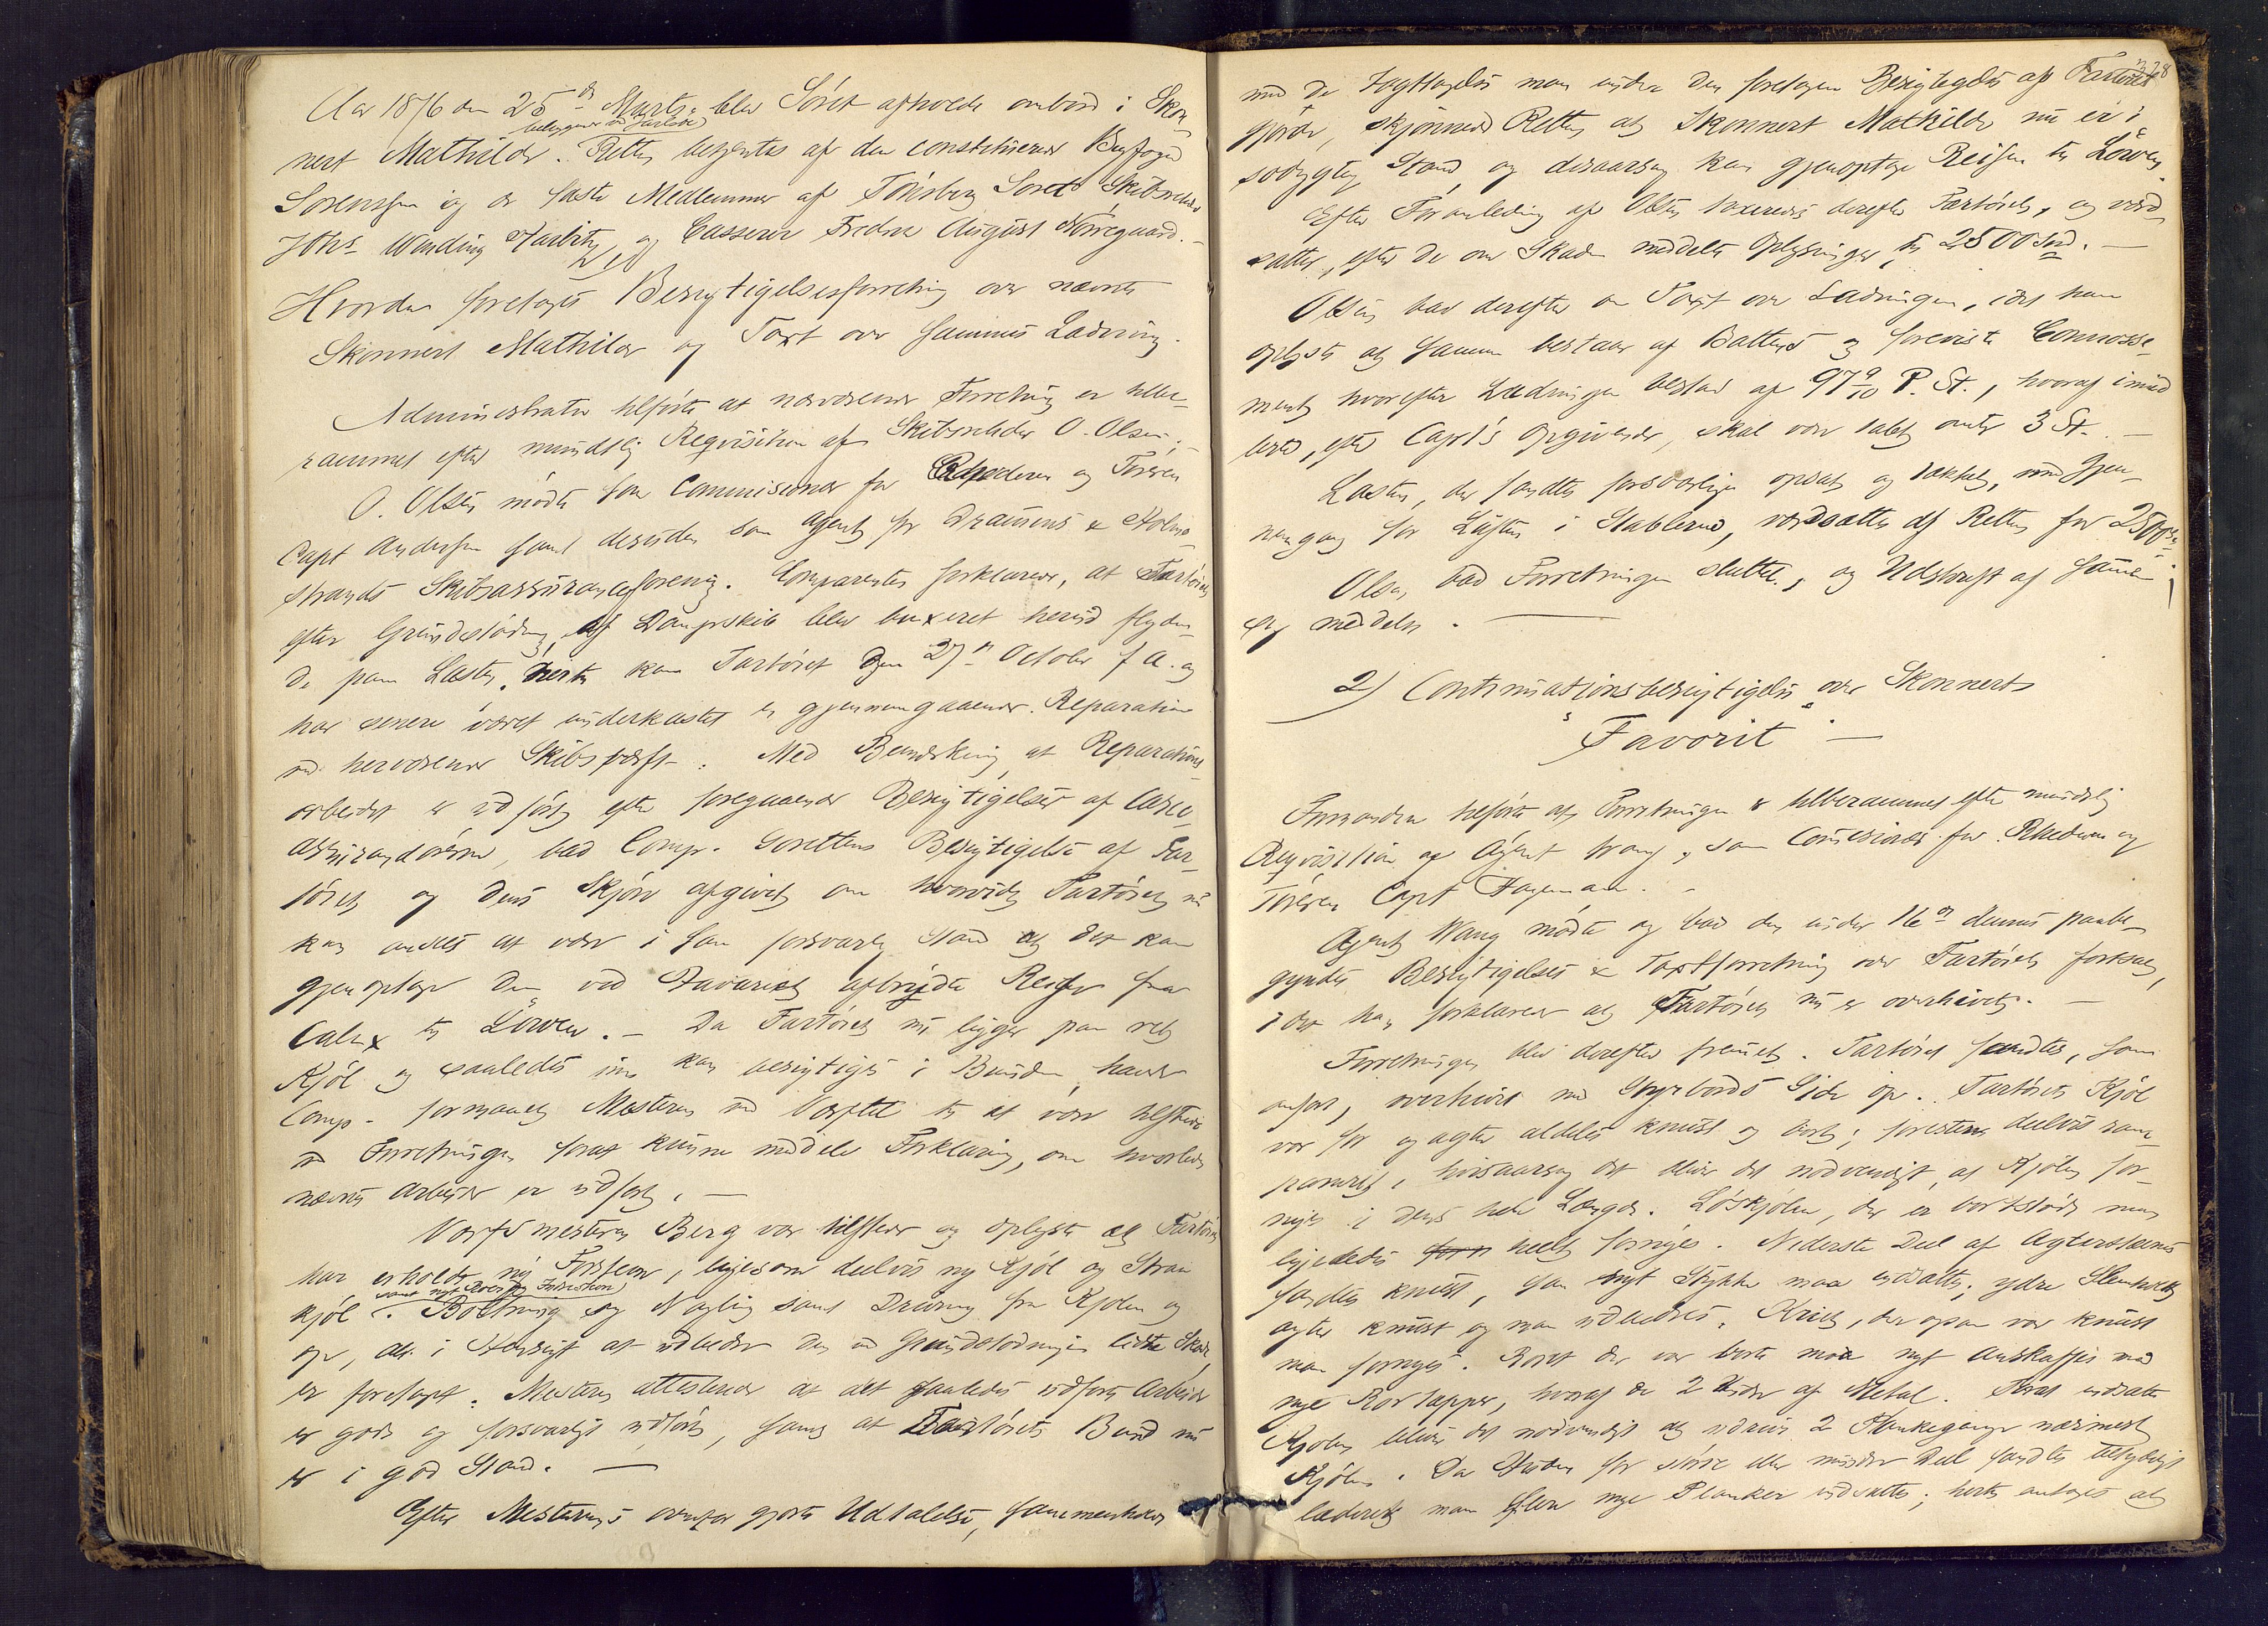 Aar 1876 den 25de Marts blev Söret afholdt ombord i Skon-
beliggende ved Jarlsö
nert Mathilde. Retten betjentes af den constituerede Byfoged
Sorenssen og de faste Medlemmer af Tönsberg Söret Skibsreder
Johs Wending Harbitz, og Casserer Fredrik August Nörregaard.
Hvorda foretoges Besigtigelsesforretning over nævnte
Skonnert Mathilde og Taxt over sammes Ladning.
Administrator tilförte at nærværende Forretning er bebe-
rammet efter mundtlig Reqvisition af Skibsreder O. Olsen.
O. Olsen mödte som Commissionær for Rhederen og Föreren
Capt Anderssen samt desuden som Agent for Drammens & Holme-
strands Skibsassuranceforening. Comparenten forklarede, at Fartöiet
efter Grundstödning af Dampskib blev buxeret herind flyden-
de paa Lasten. Hertil kom Fartöiet den 27de October f. A. og
har senere været underkastet en gjennemgaaende Reparation
ved herværende Skibsværft. Med Bemærkning at Reparations-
arbeidet er udfört efter foregaaende Besigtigelser af Casco-
assurandörerne, bad Comp. Sörettens Besigtigelse af Far-
töiet og dens Skjön afgivet om hvorvidt Fartöiet nu
kan ansees at være i saa forsvarlig Stand at det kan
gjenoptage den ved Havariet afbrudte Reise fra
Calax til Löwen. - Da Fartöiet nu ligger paa ret
Kjöl og saaledes ikke kan besigtiges i Bunden, havde
Comp. formaaet Mesteren ved Værftet til at være tilstede
ved Forretningen forat kunne meddele Forklaring, om hvorledes
nævnte Arbeide er udfört. -
Værftsmesteren Berg var tilstede og oplyste at Fartöiet
har erholdt ny Forstevn, ligesom deelvis ny Kjöl og Straa-
samt nyt Roer og
kjöl. Boltning og Nagling samt Drivning fra Kjölen og
op, alt i Hensigt at udbedre den ved Grundstödningen lidte Skade,
er foretaget. Mesteren attesterede at det saaledes udförte Arbeide
er godt og forsvarligt udfört, samt at Fartöiets Bund nu
er i god Stand. -
Efter Mesterens ovenfor gjorte Udtalelse, sammenholdt
328
med de Iagttagelser man under den foretagne Besigtigelse af Fartöiet
gjorde, skjönnede Retten at Skonnert Mathilde nu er i
södygtig Stand, og desaarsag kan gjenoptage Reisen til Löwen.
Efter Foranledning af Olsen taxeredes derefter Fartöiet, og værd-
sattes, efter de om Skaden meddelte Oplysninger, til 2500 Spd. -
Olsen bad derefter om Taxt over Ladningen, idet han
oplyste at samme bestaar af Battens og foreviste Connosse-
ment, hvorefter Ladningen bestod af 97 9/10 P. St., hvoraf imid-
lertid, efter Capt's Opgivende, skal være tabt omtr 3 St. -
Lasten, der fandtes forsvarligen opsat og takket, med Gjen-
nemgang for Luften i Stablerne, værdsattes af Retten for 2500
Olsen bad Forretningen sluttet, og Udskrift af samme
sig meddelt. -
2) Continuationsbesigtigelse over Skonnert
"Favorit" -
Formanden tilförte at Forretningen er berammet efter mundtlig
Reqvisition af Agent Wang, som Comissionær for Rhederen og
Föreren Capt Hagemann. -
Agent Wang mödte og bad den under 16de dennes paabe-
gyndte Besigtigelses & Taxtforretning over Fartöiet fortsat,
idet han forklarede at Fartöiet nu er overhivet. -
Forretningen blev derefter fremet. Fartöiet fandtes, som
anfört, overhivet med Styrbords Side op. Fartöiets Kjöl
var for og agter aldeles knust og borte; forresten deelvis ram-
poneret, hvisaarsag det bliver det nödvendigt, at Kjölen for-
nyes i dens hele Længde. Löskjölen, der er bortstödt maa
ligeledes helt fornyes. Nederste Deel af Agterstevnen
fandtes knust, saa nyt Stykke maa indsættes; ydre
agter knust og maa udbedres. Knæet, der ogsaa var knust
maa fornyes. Roret der var borte maa nyt anskaffes med
nye Rortapper, hvoraf de 2 nedre af Metal. Forat indsætte
Kjölen bliver det nödvendigt at udrive 2 Plankegange nærmest
Kjölen. Da Huden for större eller mindre Deel fandtes
læderet maa flere nye Planker indsættes; hertil antages at